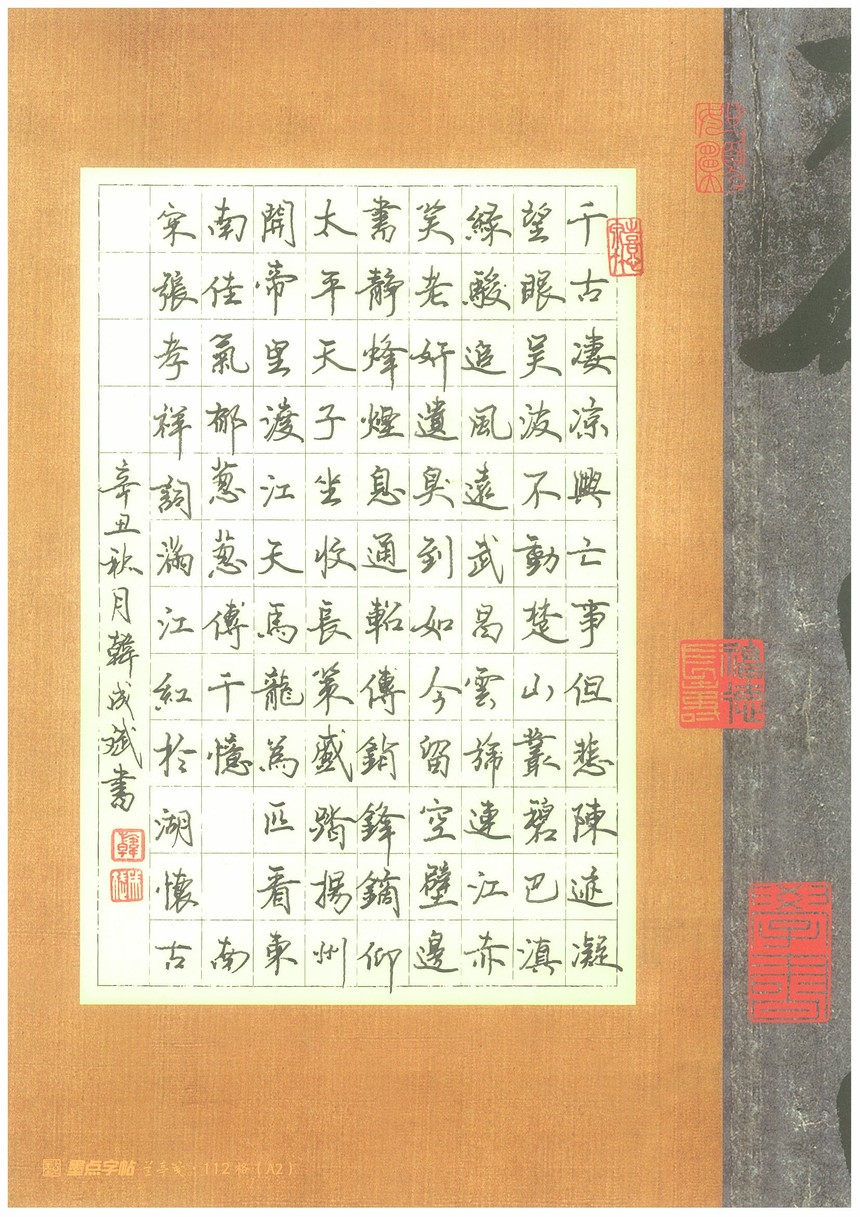 千古凄凉興亡事但悲陳迹凝
望眼吴波不動楚山叢碧巴滇
綠駿追風遠武昌雲旆連江赤
笑老奸遺臭到如今留空壁邊
書静烽煙息通軺傳銷鋒鏑仰
太平天子坐收長策蹙踏揚州
開帝里渡江天馬龍爲匹看東
南佳氣郁葱葱傳千憶 南
宋張孝祥詞滿江紅於湖懷古
辛丑秋月韓成斌書
墨点字帖
112格(A2)